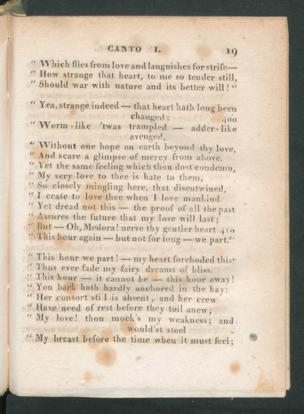 CANTO I. 19
" Which flies from love and languishes for strife—
" How strange that heart, to me so tender still,
" Should war with nature and its better will! "
" Yea, strange indeed — that heart hath long been
changed; 400
" Worm-like 'twas trampled — adder-like
avenged,
" Without one hope on earth beyond thy love,
" And scare a glimpse of mercy from above.
" Yet the same feeling which thou dost condemn,
" My very love to thee is hate to them,
" So closely mingling here, that disentwined,
" I cease to love thee when I love mankind.
" Yet dread not this — the proof of all the past
" Assures the future that my love will last;
" But — Oh, Medora! nerve thy gentler heart 410
" This hour again — but not for long — we part."
" This hour we part! — my heart foreboded this:
" Thus ever fade my fairy dreams of bliss.
" This hour — it cannot be — this hour away!
" Yon bark hath hardly anchored in the bay:
" Her consort still is absent, and her crew
" Have need of rest before they toil anew;
" My love! thou mock's my weakness; and
would'st steel
" My breast before the time when it must feel;